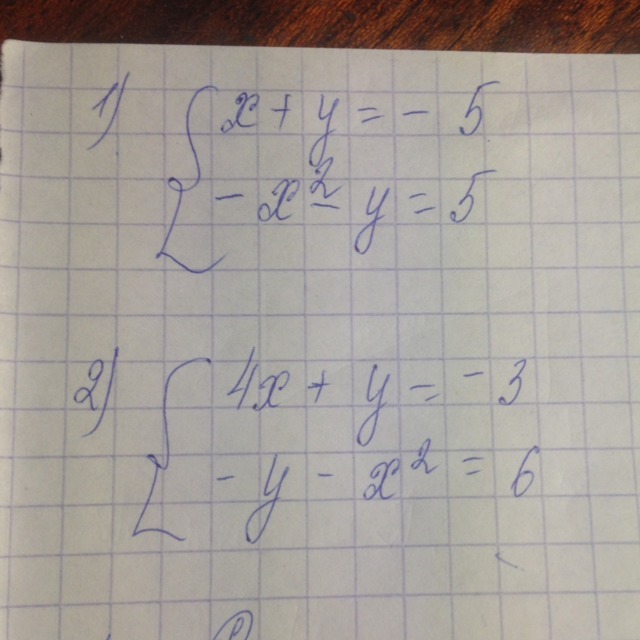 1) { x + y = - 5
- x² - y = 5
2) { 4x + y = - 3
- y - x² = 6